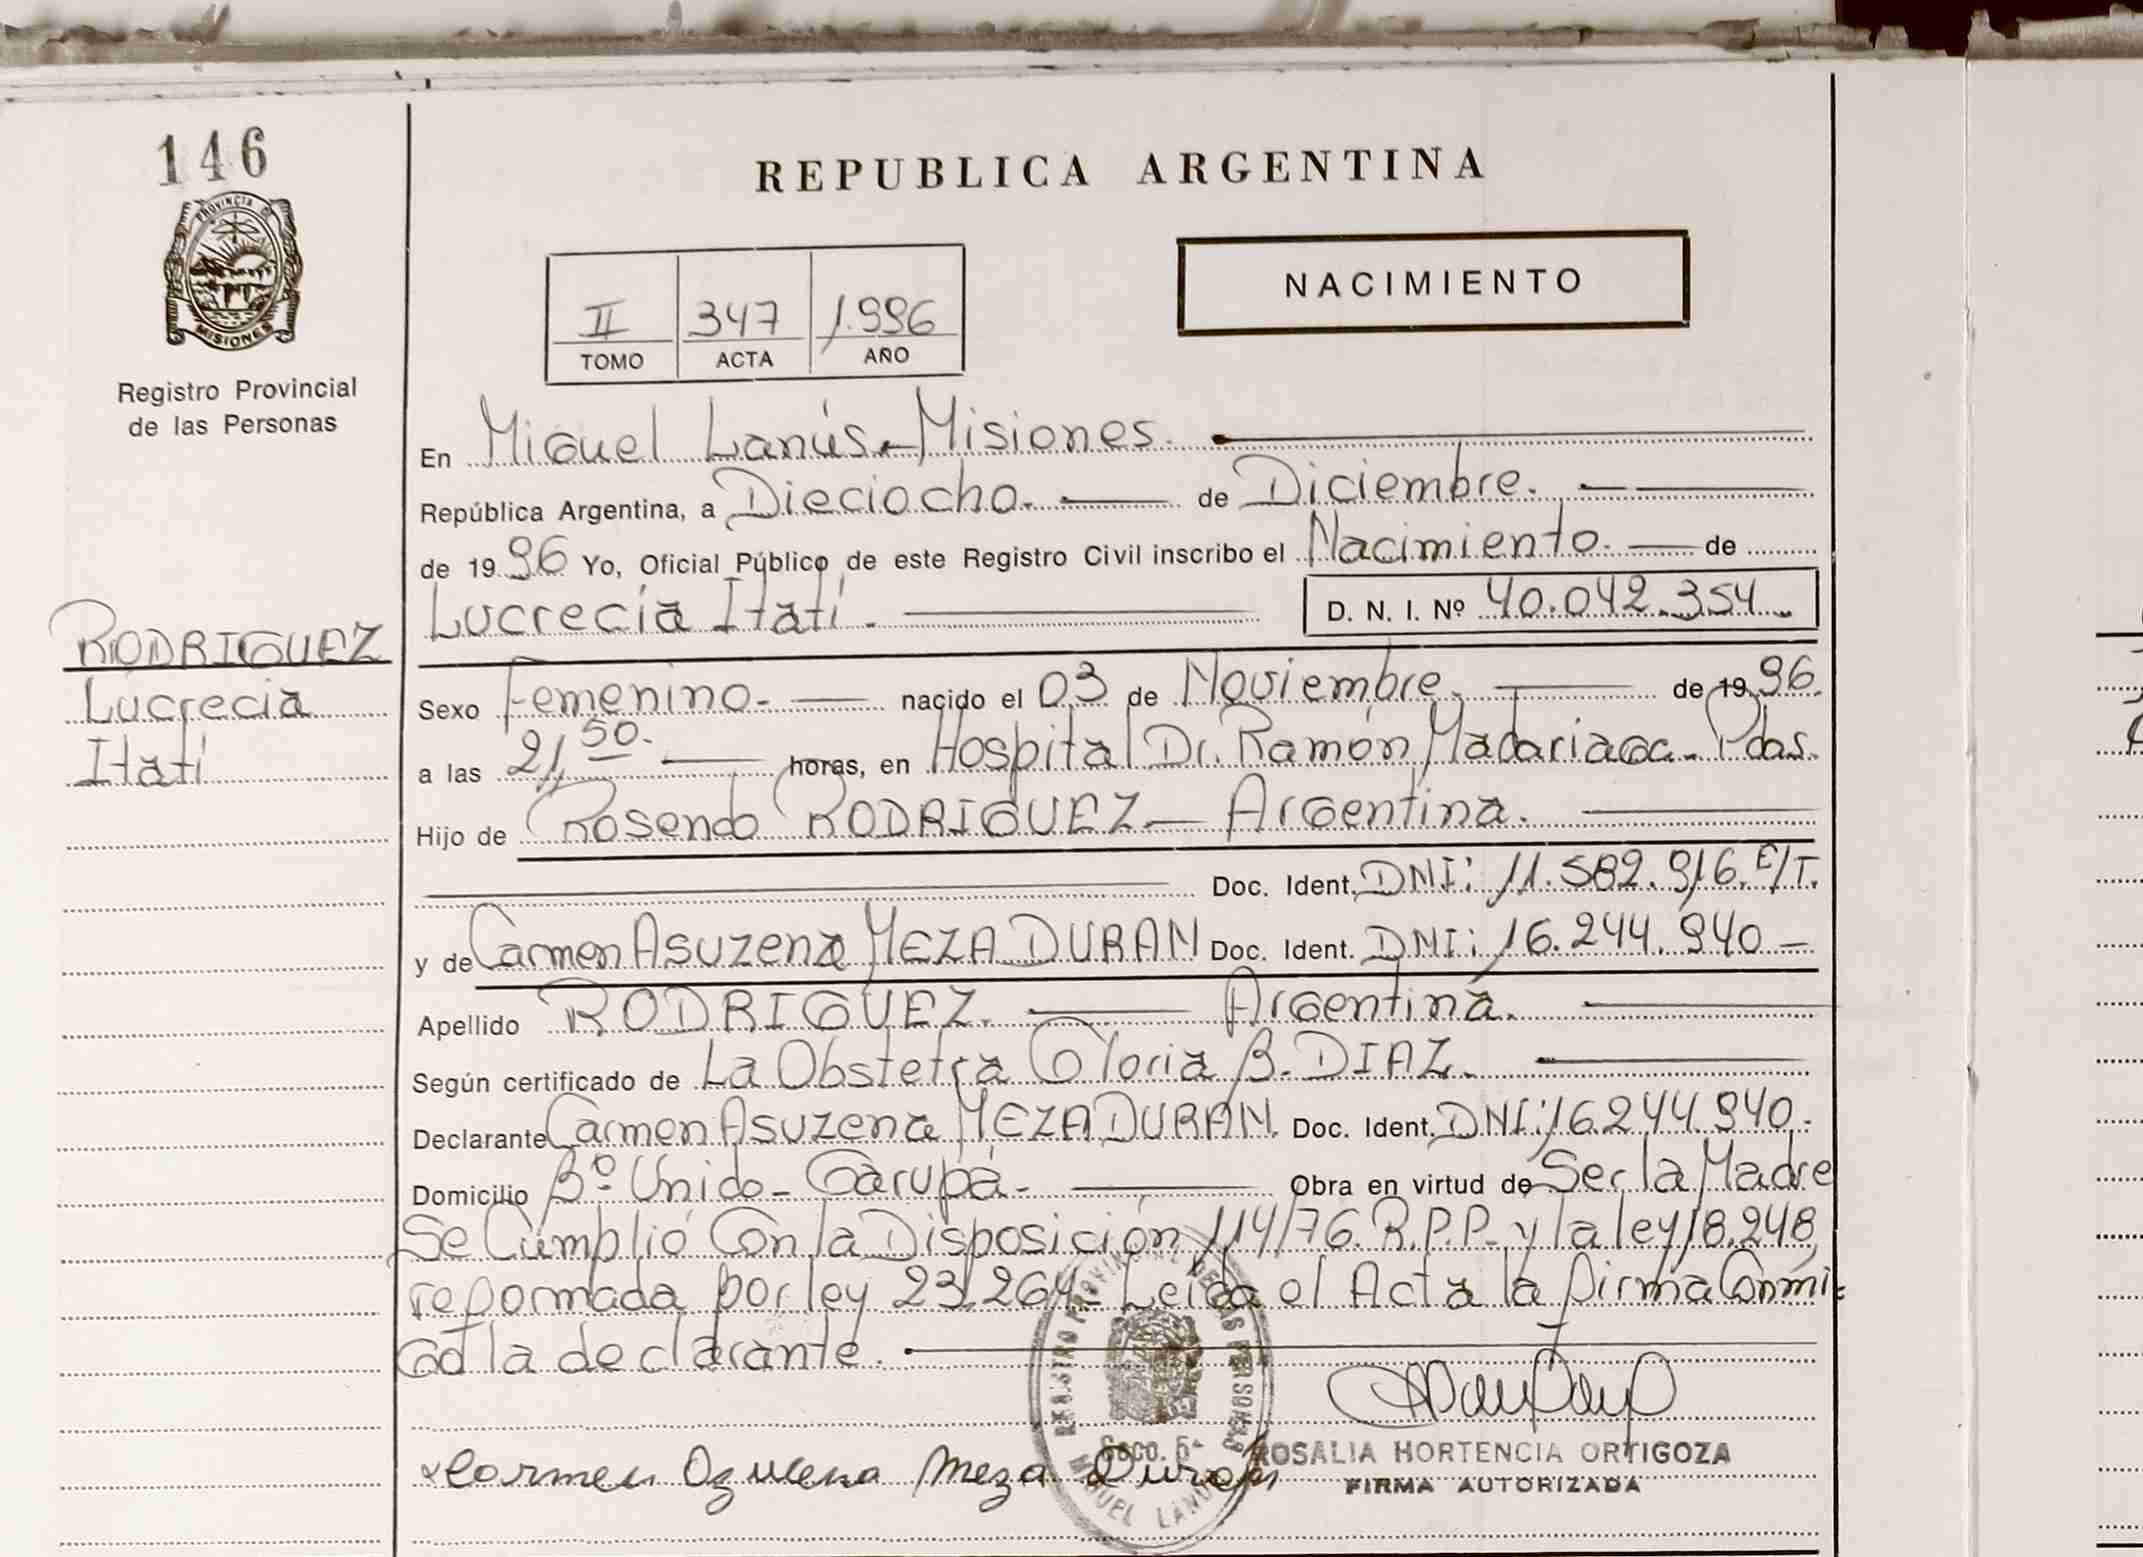 146
PROVINCIA DE
MISIONES
Registro Provincial
de las Personas
REPUBLICA ARGENTINA
NACIMIENTO
II 347 1.996
TOMO ACTA AÑO
En Miguel Lanús - Misiones.
República Argentina, a Dieciocho. de Diciembre.
de 19 96 Yo, Oficial Público de este Registro Civil inscribo el Nacimiento. de
Lucrecia Itatí. D. N. I. Nº 40.042.354
RODRIGUEZ
Lucrecia
Itatí
Sexo Femenino. nacido el 03 de Noviembre. de 19 96.
a las 21,50. horas, en Hospital Dr. Ramón Madariaga - Pdas.
Hijo de Rosendo RODRIGUEZ - Argentina.
Doc. Ident. DNI: 11.582.916. E/T.
y de Carmen Asuzena MEZA DURAN Doc. Ident. DNI: 16.244.940 -
Apellido RODRIGUEZ. Argentina.
Según certificado de La Obstetra Gloria B. DIAZ.
Declarante Carmen Asuzena MEZA DURAN. Doc. Ident. DNI: 16.244.940.
Domicilio Bº Unido - Garupá - Obra en virtud de Ser la Madre
Se Cumplió Con la Disposición 114/76. R.P.P. y la ley 18.248
reformada por ley 23.264. Leída el Acta la firma Conmi-
go la declarante.
REGISTRO PROVINCIAL DE LAS PERSONAS
MIGUEL LANUS
ROSALIA HORTENCIA ORTIGOZA
FIRMA AUTORIZADA
Carmen Ozucena Meza Duran